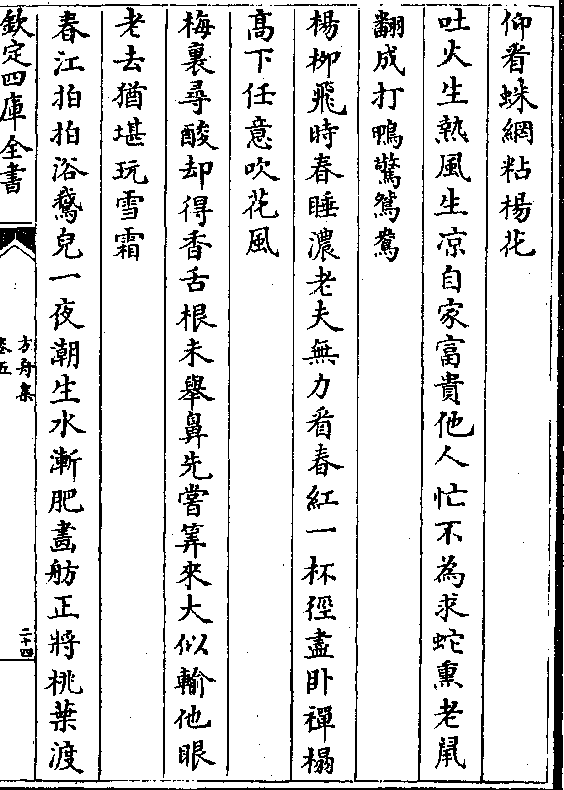 仰看蛛網粘楊花
吐火生熱風生凉自家富貴他人忙不為求蛇熏老䑕
翻成打鴨驚鴛鴦
楊柳飛時春睡濃老夫無力看春紅一杯徑盡卧禪榻
高下任意吹花風
梅裏尋酸却得香舌根未舉鼻先嘗筭來大似輸他眼
老去猶堪玩雪霜
春江拍拍浴鵞兒一夜潮生水漸肥畫舫正將桃葉渡
欽定四庫全書
方舟集
卷五
二十四